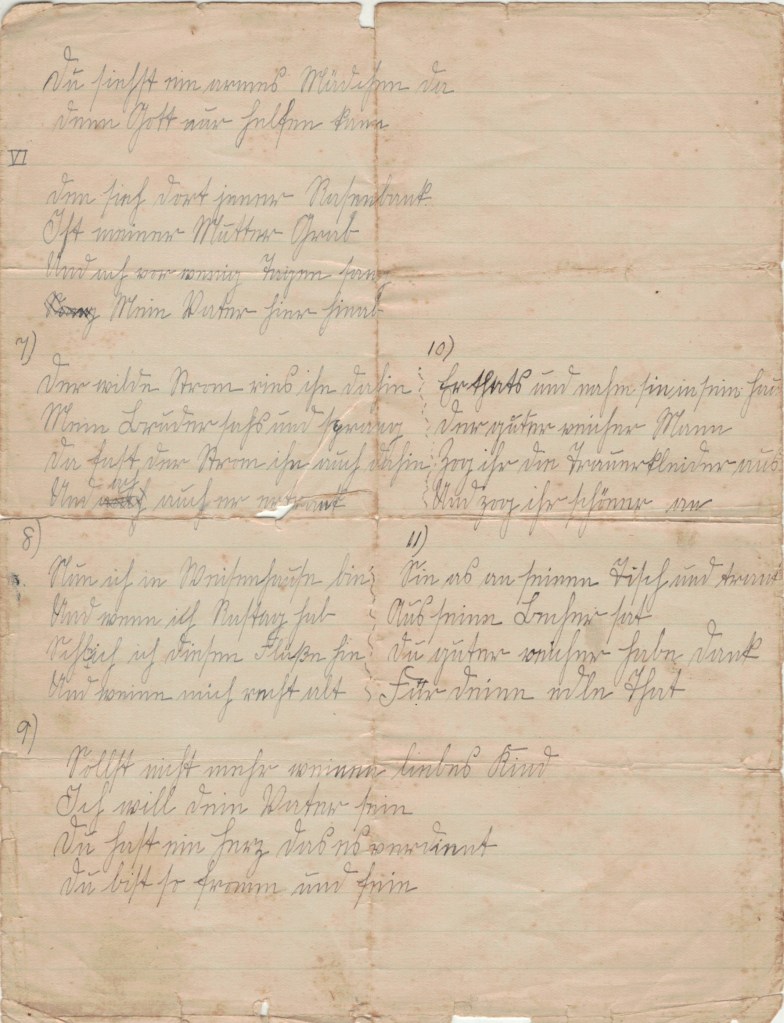 Du siehst ein armes Mädchen da
dem Gott nur helfen kann
VI
den sieh dort jener Rasenbank
Ist meiner Mutter Grab
Und ach vor wenig Tagen sang
Mein Vater hier hinab
7)
Der wilde Strom ries ihn dahin
Mein Bruder sahs und sprang
Da fast der Strom ihn auch dahin
Und ach auch er ertrank
8)
Nun ich in Weisenhause bin
Und wenn ich Rastag hab
Schleich ich diesen Fluße hin
Und weine mich recht alt
9)
Sollst nicht mehr weinen liebes Kind
Ich will dein Vater sein
Du hast ein Herz das es verdient
Du bist so fromm und fein
10)
Er thats und nahm sie in sein Hau
Der guter reicher Mann
Zog ihr die Trauerkleider aus
Und zog ihr schöner an
11)
Sie as an seinen Tisch und trank
Aus seine Becher sat
Du guter reicher habe dank
Für deine edle That